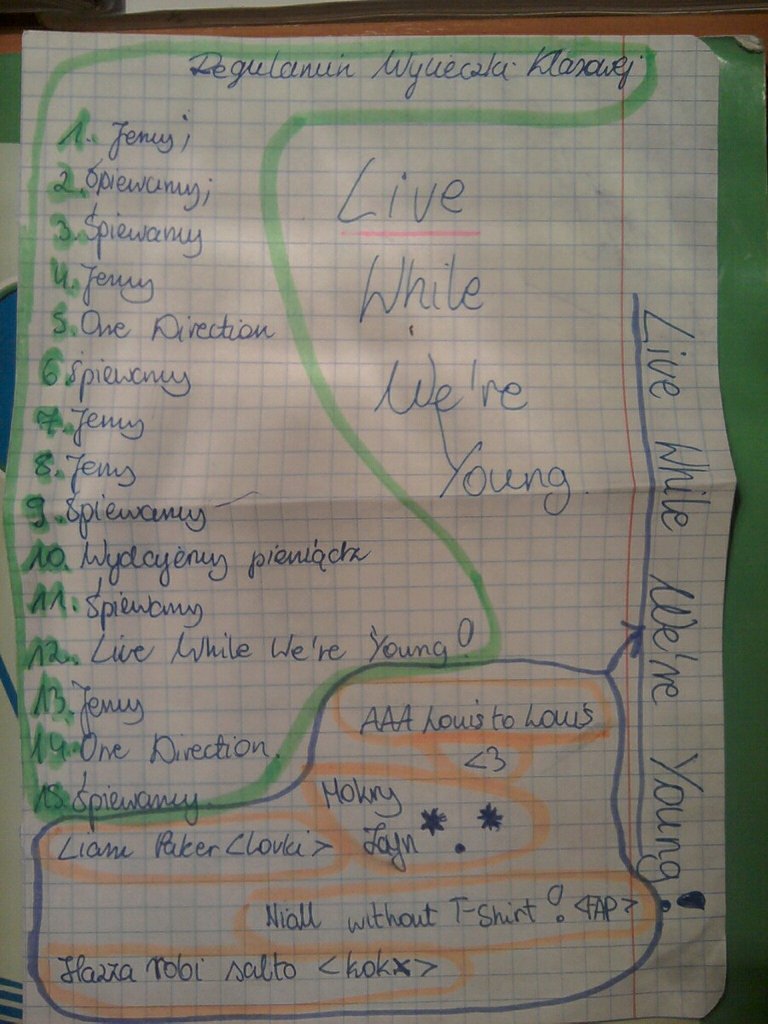 Regulamin Wycieczki Klasowej
1. Jemy;
2. Śpiewamy;
3. Śpiewamy
4. Jemy
5. One Direction
6 Śpiewamy
7. Jemy
8. Jemy
9. Śpiewamy
10. Wydajemy pieniądze
11. Śpiewamy
12. Live While We're Young!
13. Jemy
14. One Direction.
15. Śpiewamy.
Live
While
We're
Young.
Live While We're Young!
AAA Louis to Louis
<3
Mokry
Zayn **.
Liam Paker <lovki>
Niall without T-Shirt! <FAP>
Hazza robi salto <kokx>